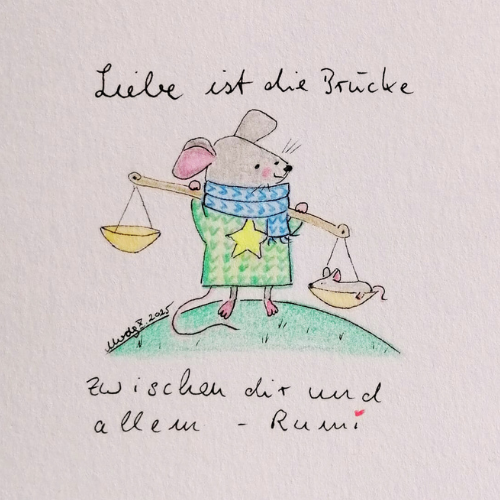 Liebe ist die Brücke
8.2025
zwischen dir und
allem - Rumi